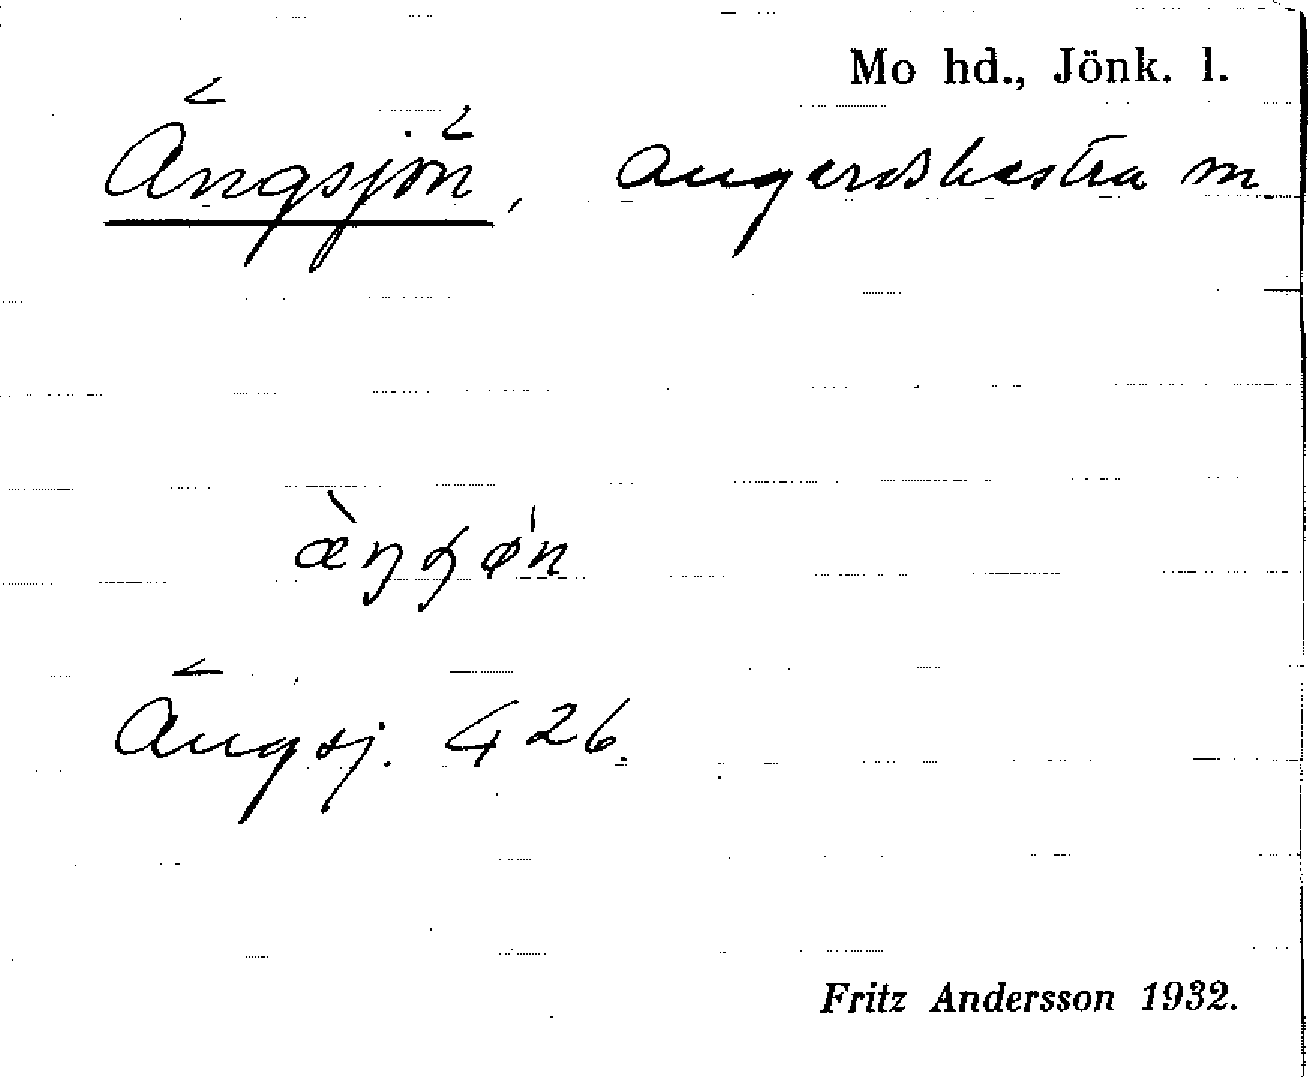 Mo hd., Jönk. l.
Ängsjön, Angerdshestra sn
æ̀ŋʂø'n
Ängsj. 426.
Fritz Andersson 1932.